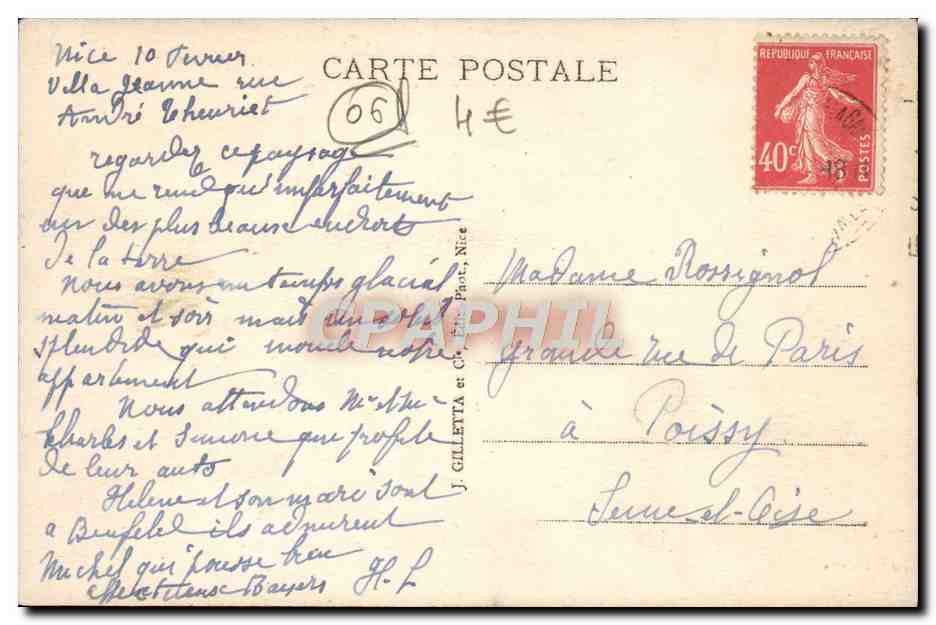 Nice 10 Fevrier
Villa Jeanne rue
André Theuriet
regardez ce paysage
que ne rend qu'imparfaitement
un des plus beaux endroits
de la terre
Nous avons un temps glacial
matin et soir mais un soleil
splendide qui inonde notre
appartement
Nous attendons Mr et Me
Charles et Simone qui profite
de leur auto
Helene et son mari sont
a Benfeld ils admirent
Michel qui pousse bien
affectueux Baisers H. L
CARTE POSTALE
06
4€
REPUBLIQUE FRANÇAISE
40c
POSTES
18
J. GILLETTA et Cie, Edit. Phot., Nice
CPAPHIL
Madame Rossignol
grande rue de Paris
à Poissy
Seine-et-Oise